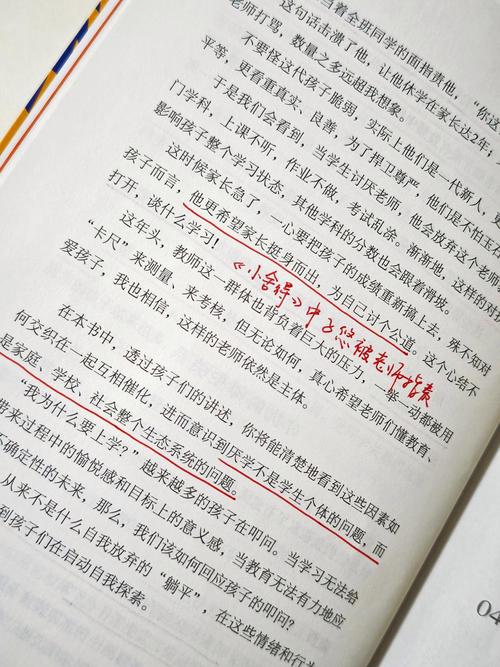 当着全班同学的面指责他，“你这
这句话击溃了他，让他休学在家长达2年；
老师打骂，数量之多远超我想象。
不要怪这代孩子脆弱，实际上他们是一代新人，更
平等，更看重真实、良善，为了捍卫尊严，他们是不怕玉石
于是我们会看到，当学生讨厌老师，他会放弃这个老
门学科，上课不听，作业不做，考试乱涂。渐渐地，这样的
影响孩子整个学习状态，其他学科的分数也会跟着滑坡。
这时候家长急了，一心要把孩子的成绩重新搞上去，殊不知对
孩子而言，他更希望家长挺身而出，为自己讨个公道。这个心结不
打开，谈什么学习！
《小舍得》中子悠被老师指责
这年头，教师这一群体也背负着巨大的压力，一举一动都被用
“卡尺”来测量、来考核，但无论如何，真心希望老师们懂教育、
爱孩子，我也相信，这样的老师依然是主体。
在本书中，透过孩子们的讲述，你将能清楚地看到这些因素如
何交织在一起互相催化，进而意识到厌学不是学生个体的问题，而
是家庭、学校、社会整个生态系统的问题。
“我为什么要上学？”越来越多的孩子在叩问。当学习无法给
带来过程中的愉悦感和目标上的意义感，当教育无法有力地应
不确定性的未来，那么，我们该如何回应孩子的叩问？
从来不是什么自我放弃的“躺平”，在这些情绪和行
到孩子们在启动自我探索。
04